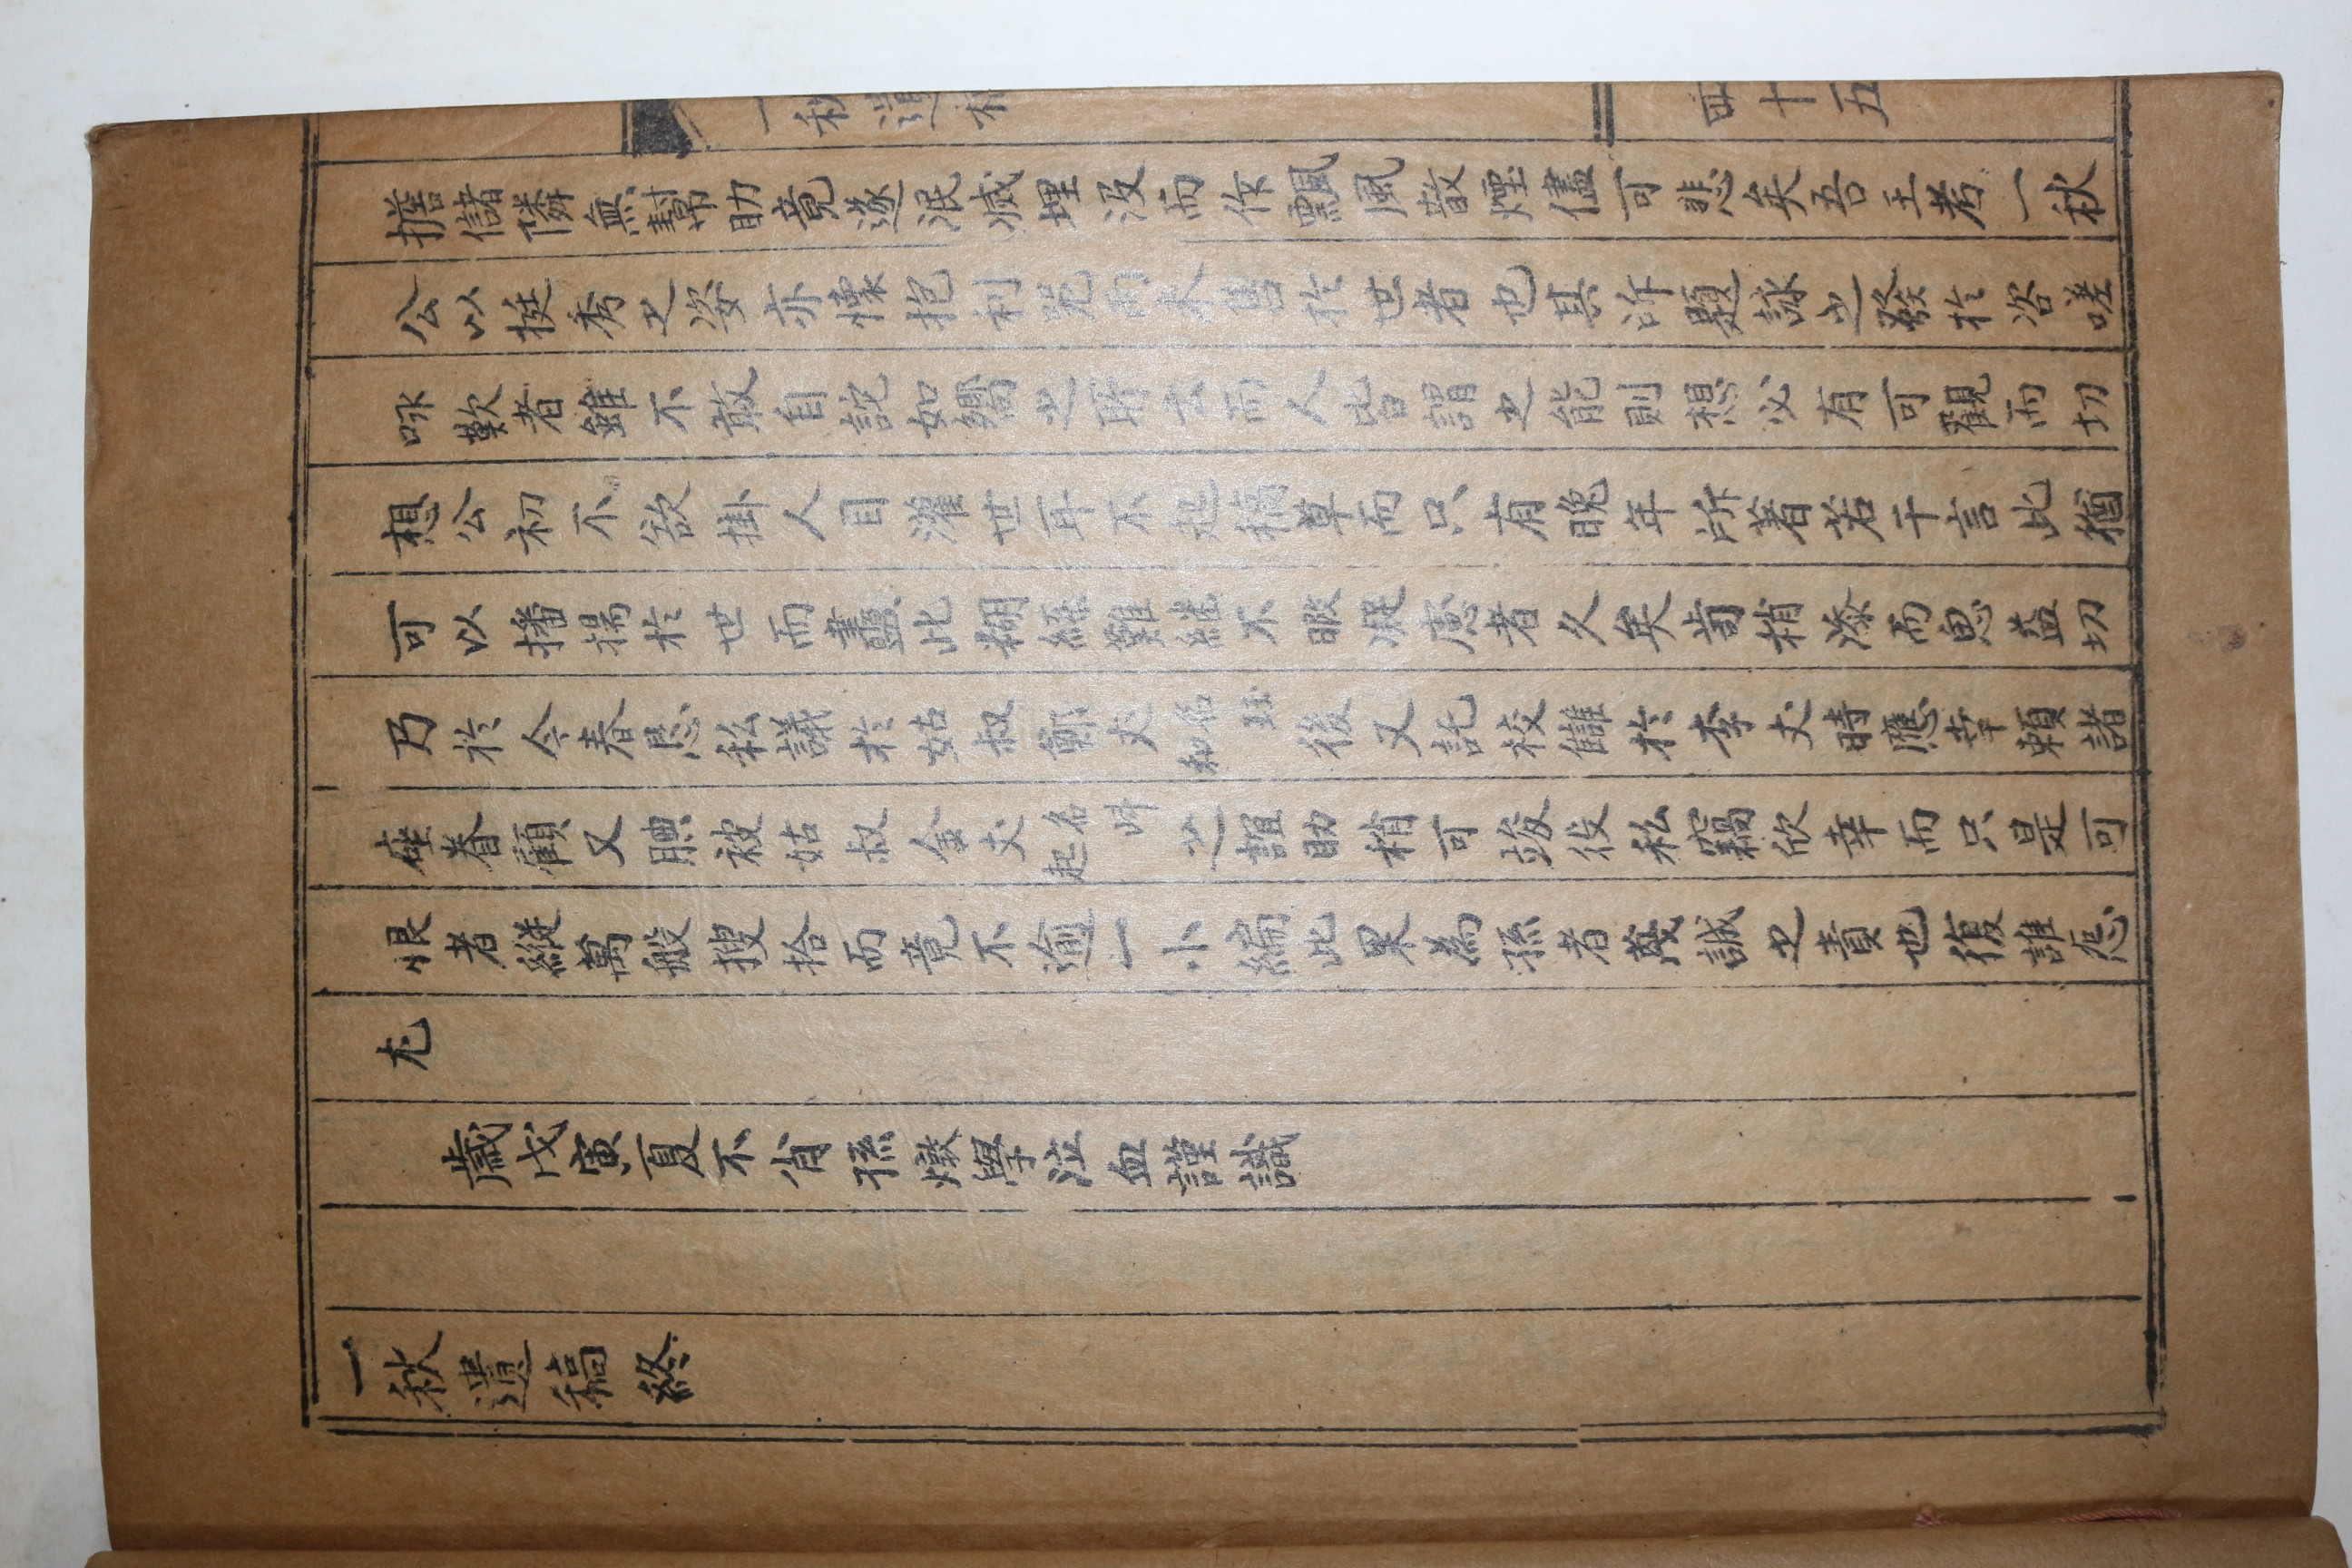 一秋遺稿
四十五
擔儲隣無幫助竟遂泯滅埋沒而作飄風散煙儘可悲矣吾王考一秋
公以挺秀之姿亦懷抱利器而未售於世者也其所題詠之發於咨嗟
咏歎者雖不敢自詑如嚮之所云而人皆謂之能則想必有可觀而切
想公初不欲掛人目灌世耳不起稿草而只有晚年所著若干言此猶
可以播揚於世而盡此糊纸難繼不暇凝慮者久矣齒稍添而思益切
乃於今春恳私議於姑叔鄭丈名珏和後又託校讎於李丈時應幸賴諸
座眷顧又腆被姑叔金丈名㟁起之誼助稍可竣役私竊欣幸而只是可
恨者縱萬般搜拾而竟不逾一小編此果為孫者蔑誠之責也復誰怨
尤
歲戊寅夏不肖孫燉學泣血謹識
一秋遺稿終